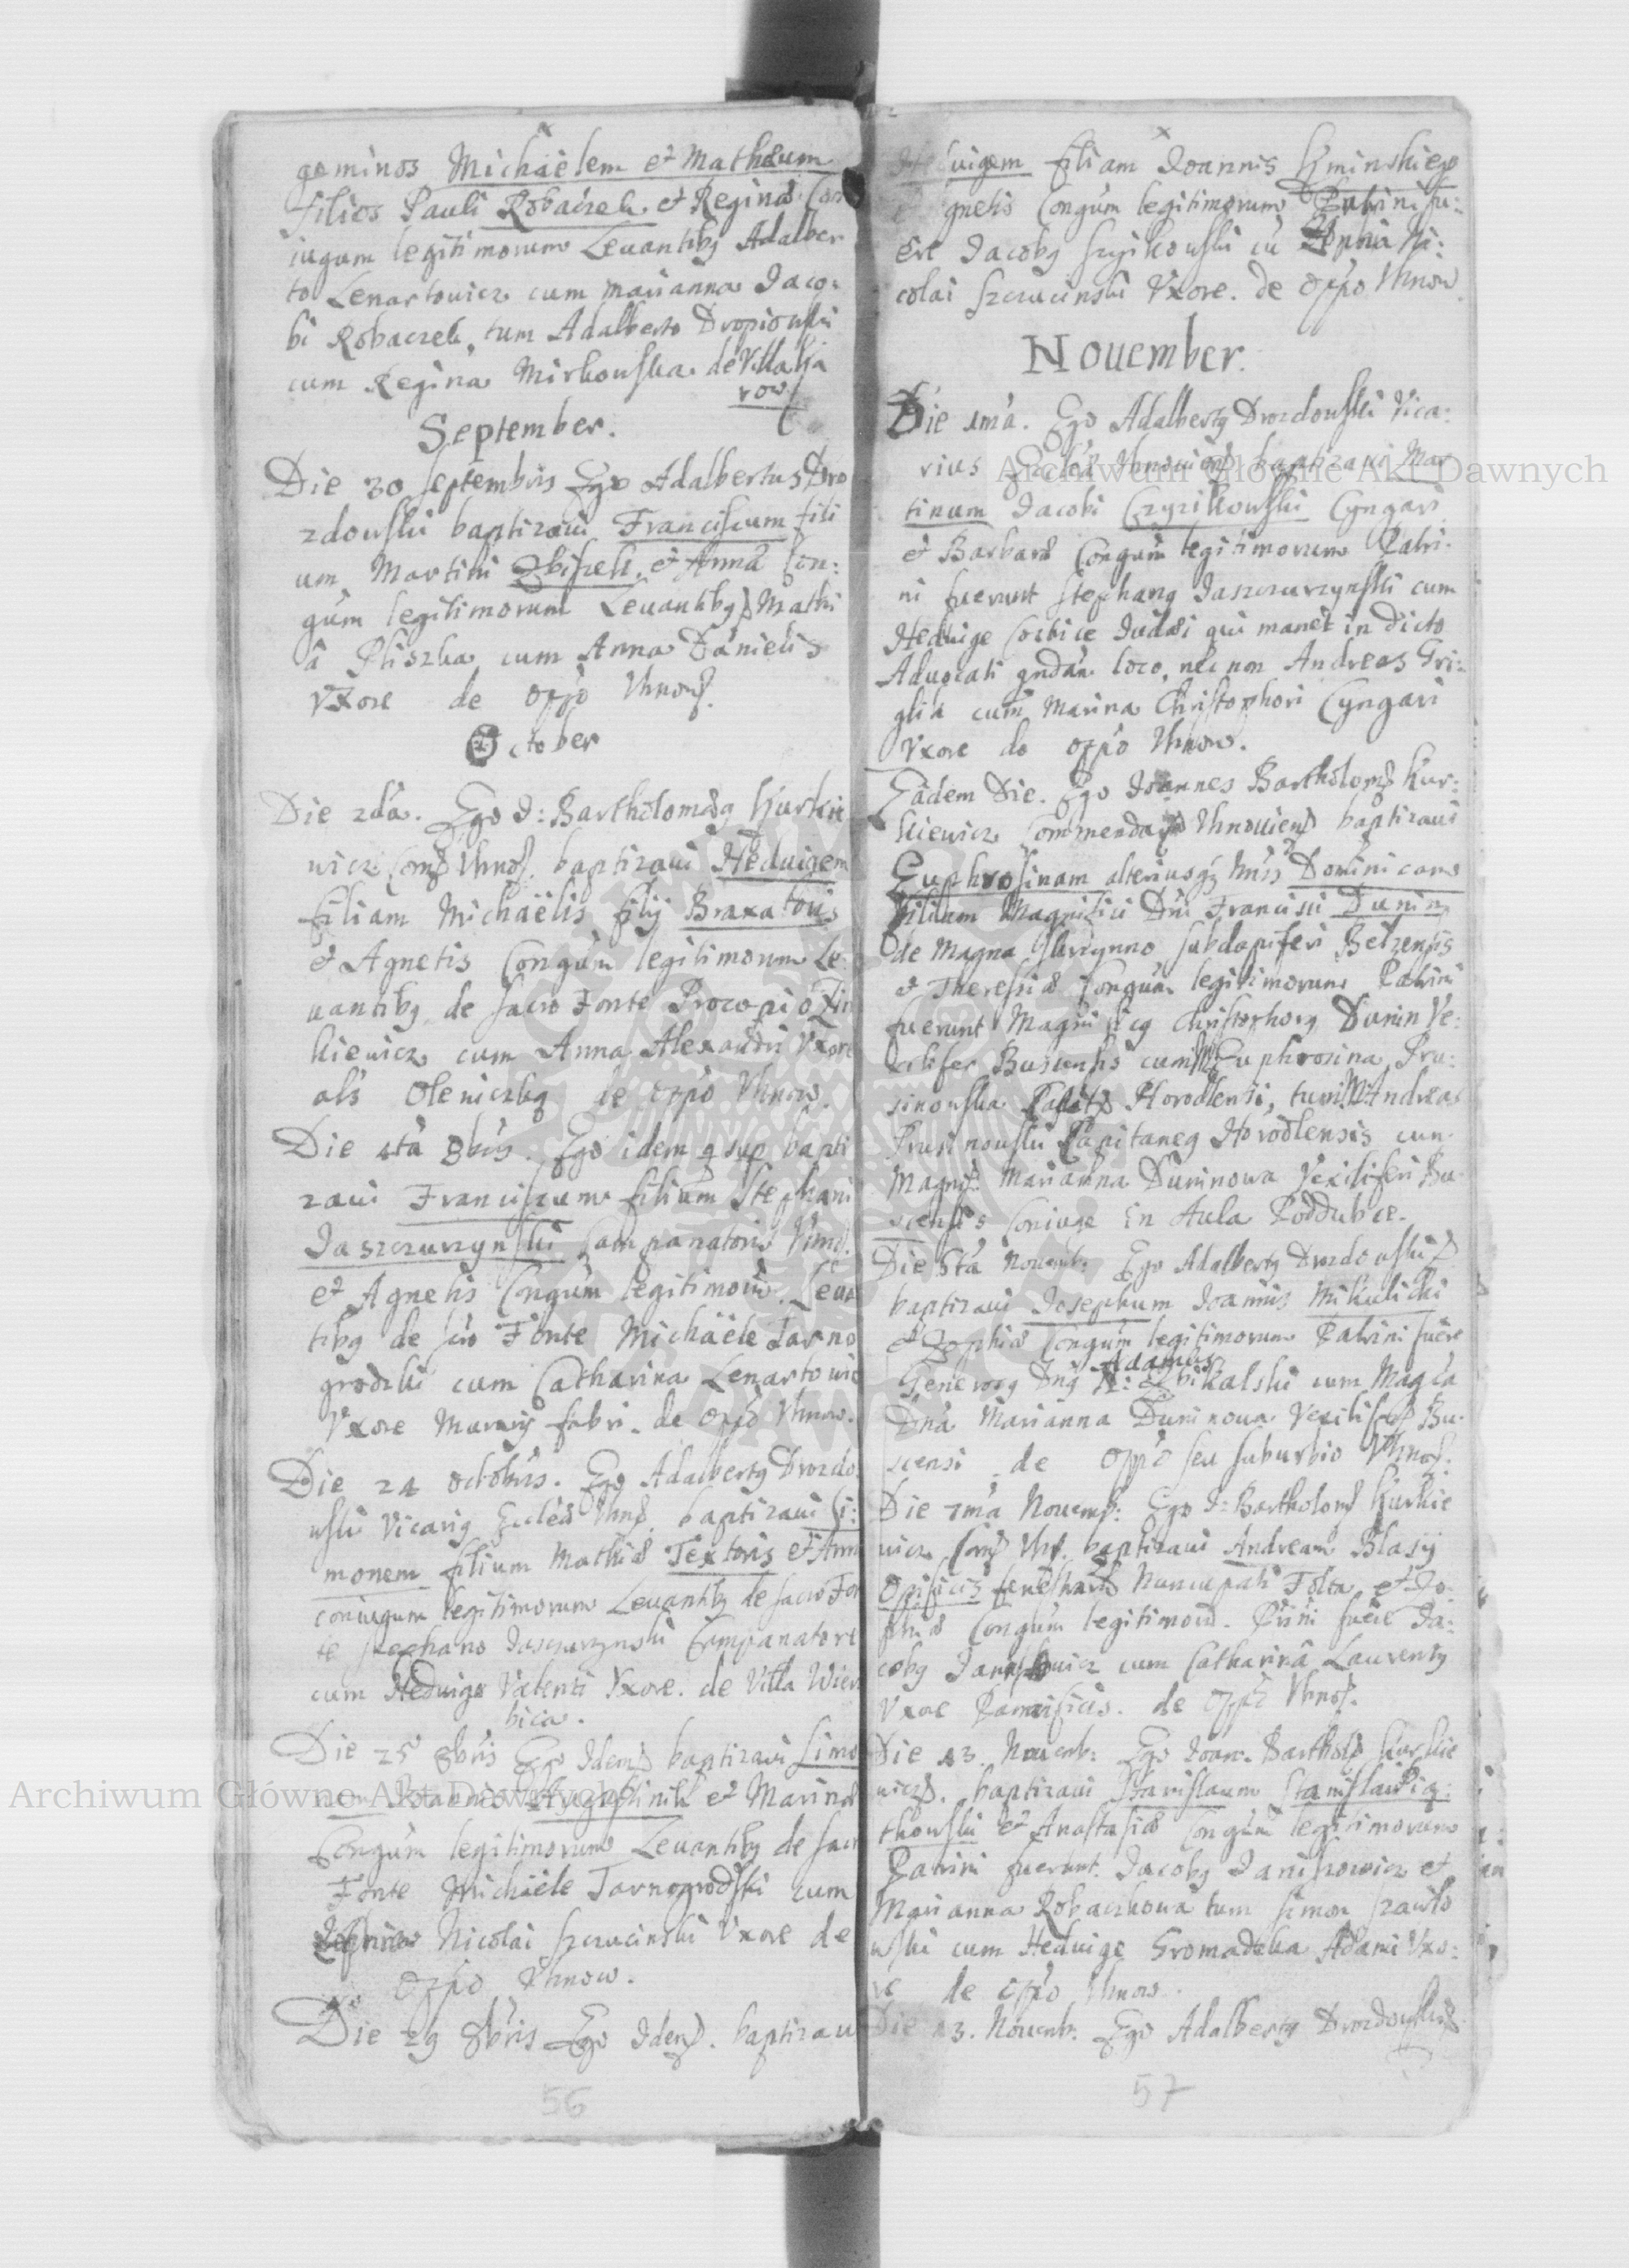 geminos Michäelem et Mathæum
filios Pauli Robaczek et Reginæ Con
iugum legitimorum Levantibg Adalber
to Lenartowicz cum Marianna Jaco:
bi Robaczek, tum Adalberto Dropiowski
cum Regina Mirkowska de Villa Kar
row
September.
Die 30 septembris Ego Adalbertus Dro
zdowski baptizavi Franciscum fili
um Martini et Anna Con:
gum legitimorum Levantibg Mathi
a Pliszka cum Anna Danielis
Vxore de oppo Vhnow.
October
Die 2da. Ego J: Bartholomeg Kurkie
wicz Com Vhnow. baptizavi Heduigem
filiam Michäelis filij Braxatoris
et Agnetis Congum legitimorum Le
vantibg de sacro Fonte Procopio
kiewicz cum Anna Alexandri Vxore
als Oleniczkg de oppo Vhnow.
Die 4ta 8bris. Ego idem q sup bapti
zavi Franciscum filium Stephani
Jaszczurzynski Campanatoris Vhno.
et Agnetis Congum legitimoru. Levan
tibg de scro Fonte Michäele Tarno
grodzki cum Catharina Lenartowic
Vxore fabri de oppo Vhnow.
Die 24 octobris. Ego Adalbertg Drozdo
wski Vicarig Eccleæ Vhn. baptizavi Si:
monem filium Mathiæ Textoris et Ann
coniugum legitimorum Levantibg de sacro Fon
te Stephano Jaszczurzynski Campanatore
cum Heduige Valenti Vxore. de Villa Wier
bica.
Die 25 8bris Ego Idem baptizavi Simo
nem Joannis et Marinæ
Congum legitimorum Levantibg de sacr
Fonte Michäele Tarnogrodski cum
Nicolai Szczucinski Vxore de
oppo Vhnow.
Die 29 8bris Ego Idem. baptizav
56
Heduigem filiam Joannis Kminskiego
et Agnetis Congum legitimorum Patrini fu:
ere Jacobg cu Zophia Ni:
colai Szczucinski Vxore. de oppo Vhnow
November.
Die 1ma. Ego Adalbertg Drozdowski Vica:
rius Eccleæ Vhnouien baptizavi Mar
tinum Jacobi Czyzikowski Cyngari
et Barbaræ Congum legitimorum Patri:
ni fuerunt Stephang Jaszczurzynski cum
Heduige Judæi qui manet in dicto
Aduocati loco, nec non Andreas Gri:
glia cum Marina Christophori Cyngari
Vxore de oppo Vhnow.
Eadem Die. Ego Joannes Bartholom Kur:
kiewicz Commenda Vhnouien baptizavi
Euphrosinam Dominicam
filiam Magnifici Dni Francisci Dunin
de Magna subdapiferi Belzensis
et Theresiæ Congum legitimorum Patrini
fuerunt Magnificg Christophorg Dunin Ve:
xilifer Buscensis cum Euphrosina Pru:
sinowska Horodlensi, tum M Andreas
Prusinowski Capitaneg Horodlensis cum
Magnif. Marianna Duninowa Vexiliferi Bu:
scensis Coniuge in Aula Poddubce.
Die 5ta Novemb: Ego Adalbertg Drozdowski
baptizavi Josephum Joannis Mikulicki
et Zophiæ Congum legitimorum Patrini fuere
Adamus
Generosg Dng N: Zbikalski cum Magca
Dna Marianna Duninowa Vexilife Bu:
scensi de oppo seu suburbio Vhnow.
Die 7ma Novemb: Ego J: Bartholom Kurkie
wicz Com Vhn. baptizavi Andream Blasij
Opificis Nuncupati Folta et Zo:
phiæ Congum legitimoru. Prini fuere Ja:
cobg Janiszowicz cum Catharina Laurentij
Vxore. de oppo Vhnow.
Die 13. Novemb: Ego Joan. Barthol Kurkie
wicz. baptizavi Stanislaum Stanislai Pią:
tkowski et Anastasiæ Congum legitimorum
Patrini fuerunt. Jacobg Janiszowicz et
Marianna Robaczkowa tum Simon Szawlo
wski cum Heduige Gromadzka Adami Vxo:
re de oppo Vhnow.
Die 13. Novemb. Ego Adalbertg Drozdowski
57
Archiwum Główne Akt Dawnych
Archiwum Główne Akt Dawnych